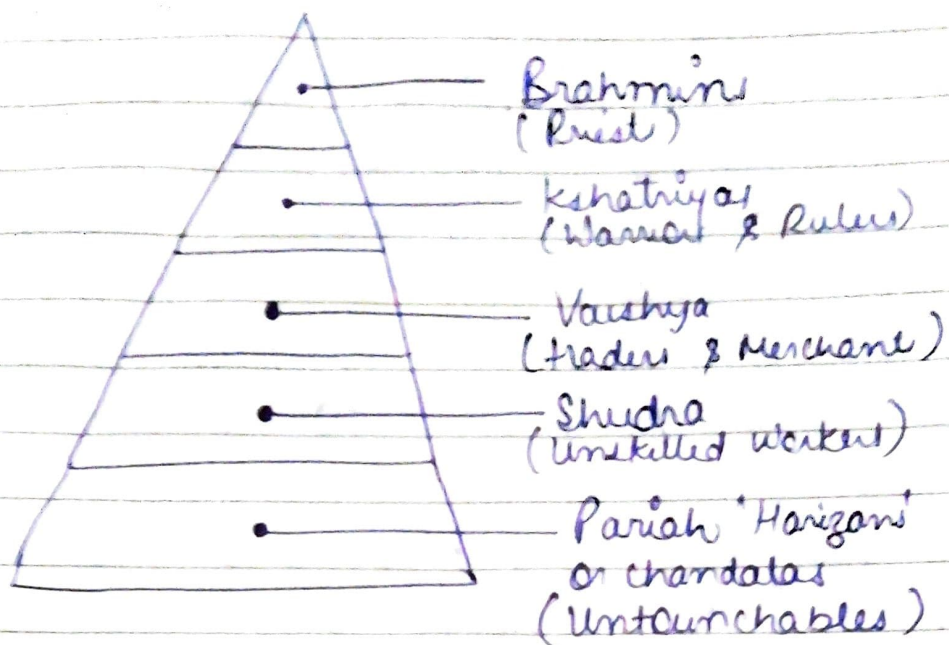 Brahmins
(Priest)
Kshatriyas
(Warriors & Rulers)
Vaishya
(traders & Merchant)
Shudra
(Unskilled Workers)
Pariah 'Harizans'
or chandalas
(Untounchables)